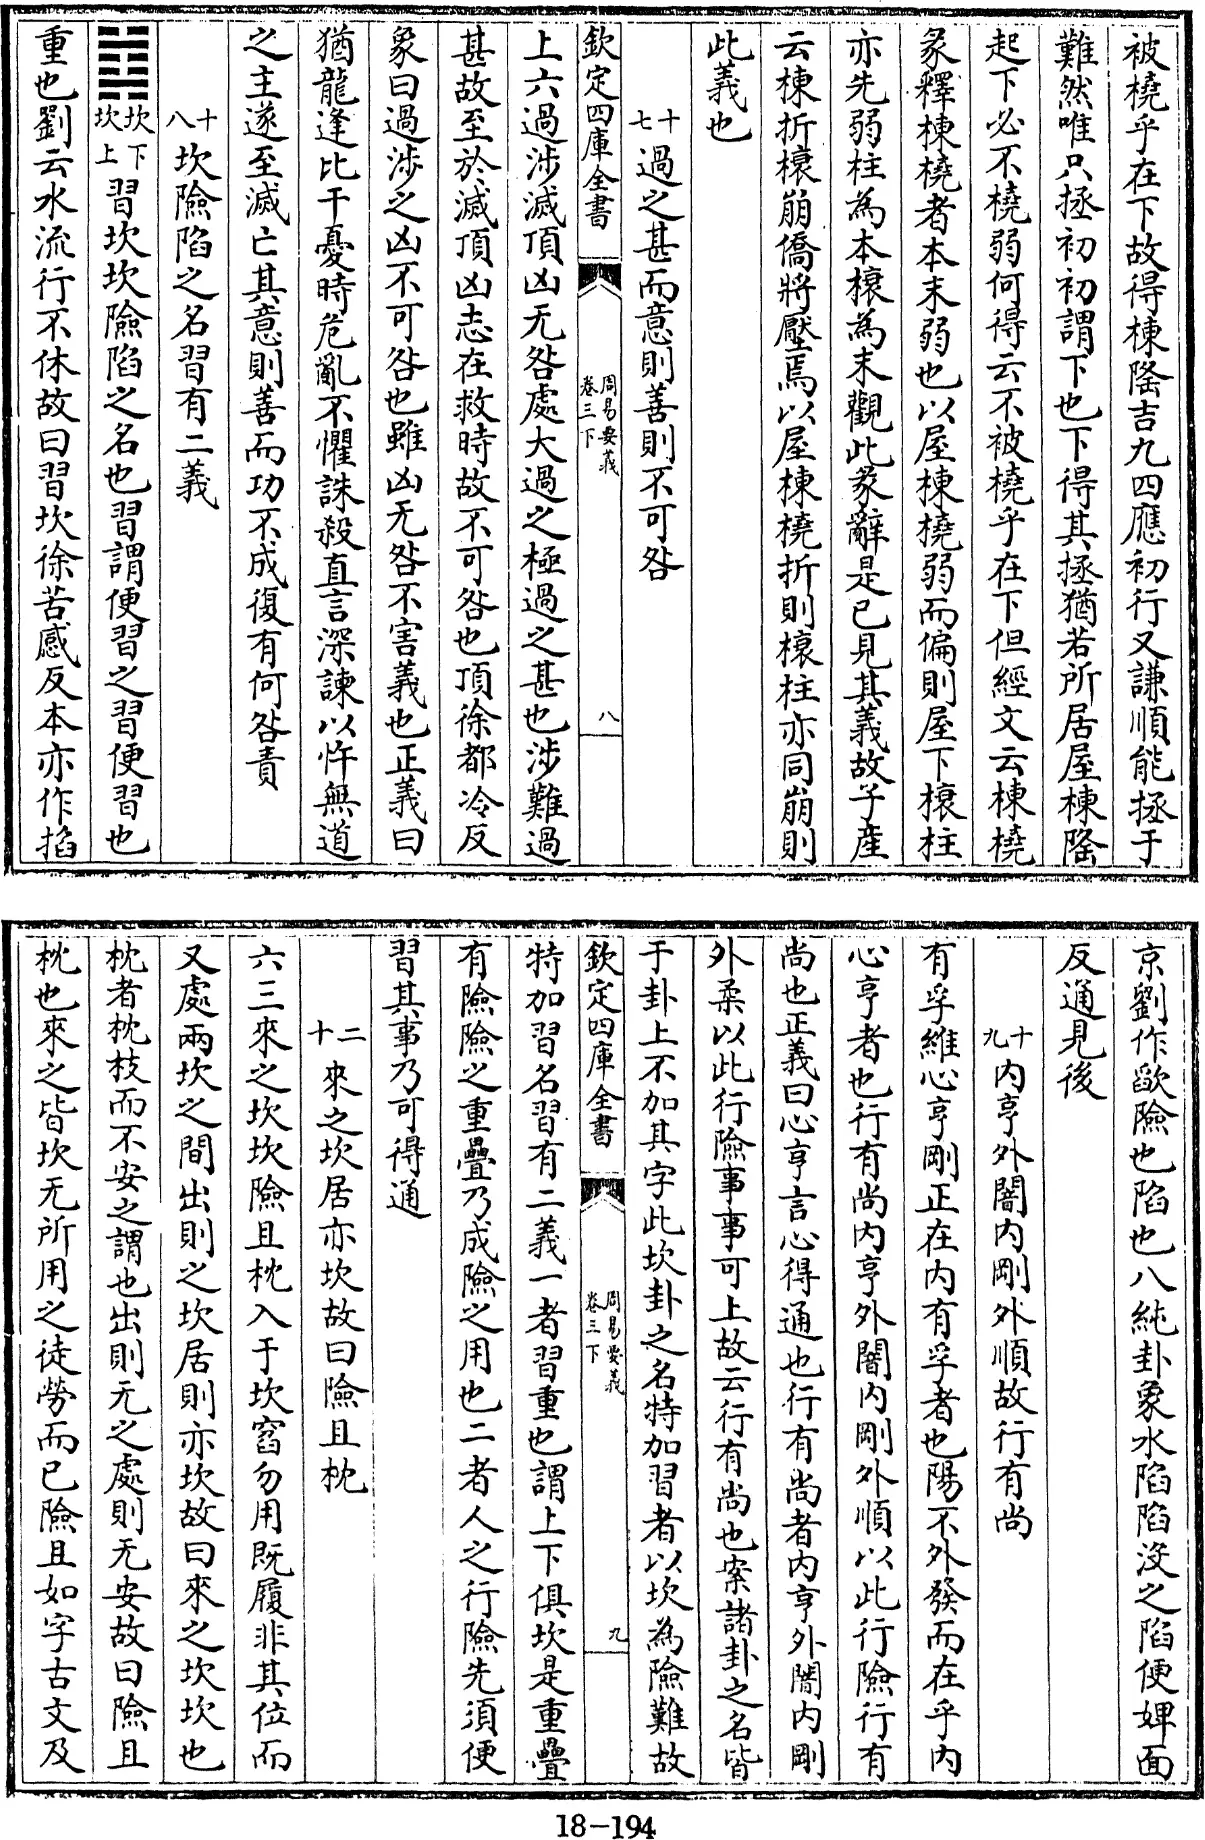 被橈乎在下故得棟隆吉九四應初行又謙順能拯于
難然唯只拯初初謂下也下得其拯猶若所居屋棟隆
起下必不橈弱何得云不被橈乎在下但經文云棟橈
彖釋棟橈者本末弱也以屋棟橈弱而偏則屋下榱柱
亦先弱柱為本榱為末觀此彖辭是已見其義故子產
云棟折榱崩僑將壓焉以屋棟橈折則榱柱亦同崩則
此義也
十七過之甚而意則善則不可咎
欽定四庫全書 周易要義卷三下 八
上六過涉滅頂凶无咎處大過之極過之甚也涉難過
甚故至於滅頂凶志在救時故不可咎也頂徐都冷反
象曰過涉之凶不可咎也雖凶无咎不害義也正義曰
猶龍逢比干憂時危亂不懼誅殺直言深諫以忤無道
之主遂至滅亡其意則善而功不成復有何咎責
十八坎險陷之名習有二義
䷜坎下坎上習坎坎險陷之名也習謂便習之習便習也
重也劉云水流行不休故曰習坎徐苦感反本亦作掐
京劉作欿險也陷也八純卦象水陷陷沒之陷便婢面
反通見後
十九內亨外闇內剛外順故行有尚
有孚維心亨剛正在內有孚者也陽不外發而在乎內
心亨者也行有尚內亨外闇內剛外順以此行險行有
尚也正義曰心亨言心得通也行有尚者內亨外闇內剛
外柔以此行險事事可上故云行有尚也案諸卦之名皆
于卦上不加其字此坎卦之名特加習者以坎為險難故
欽定四庫全書 周易要義卷三下 九
特加習名習有二義一者習重也謂上下俱坎是重疊
有險險之重疊乃成險之用也二者人之行險先須便
習其事乃可得通
二十來之坎居亦坎故曰險且枕
六三來之坎坎險且枕入于坎窞勿用既履非其位而
又處兩坎之間出則之坎居則亦坎故曰來之坎坎也
枕者枕枝而不安之謂也出則无之處則无安故曰險且
枕也來之皆坎无所用之徒勞而已險且如字古文及
18-194